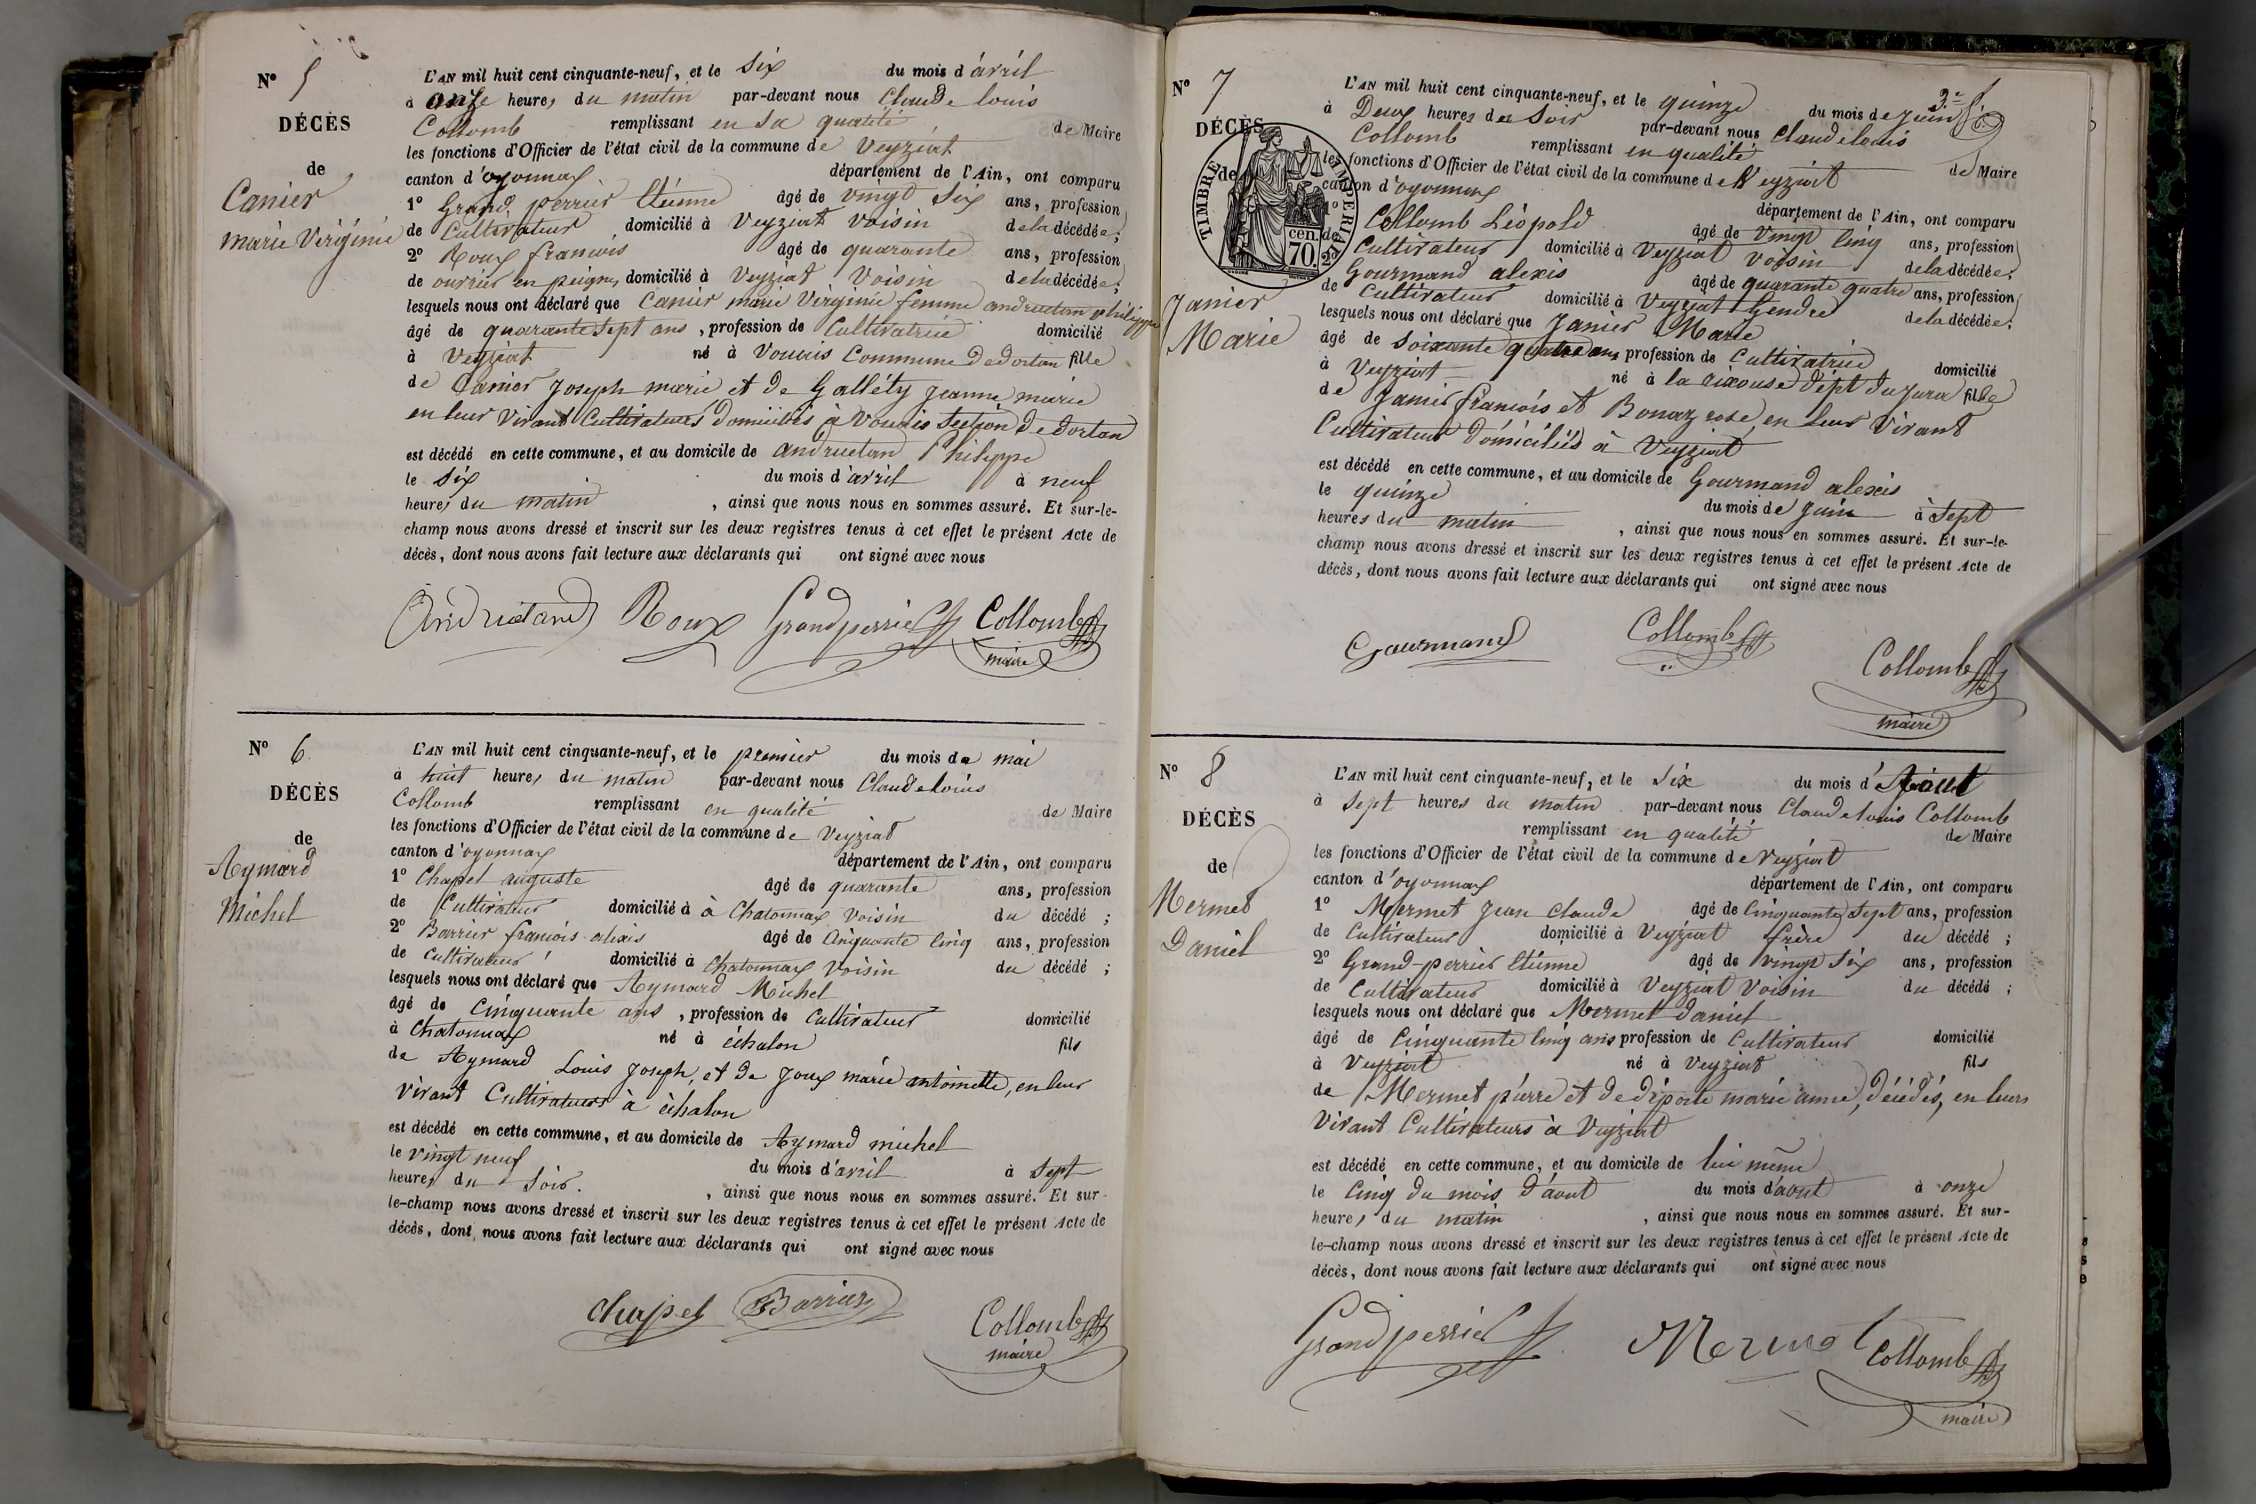 N° 5
DÉCÈS
de
Canier
marie Virginie
L'AN mil huit cent cinquante-neuf, et le Six du mois d'avril
à onze heures du matin par-devant nous Claude louis
Collomb remplissant en sa qualité de Maire
les fonctions d'Officier de l'état civil de la commune de Veyziat
canton d'oyonnax département de l'Ain, ont comparu
1° Grand perrier Etienne âgé de vingt Six ans, profession
de Cultivateur domicilié à Veyziat voisin de la décédée;
2° Roux francois âgé de quarante ans, profession
de ouvrier en peignes domicilié à Veyziat Voisin de la décédée;
lesquels nous ont déclaré que Canier marie Virginie femme andruetan philippe
âgé de quarante Sept ans, profession de Cultivatrice domicilié
à Veyziat né à Vouais Commune de dortan fille
de Canier Joseph marie et de Galléty Jeanne marie
en leur Vivant Cultivateurs domiciliés à Vouais Section de dortan
est décédé en cette commune, et au domicile de andruetan Philippe
le Six du mois d'avril à neuf
heures du matin, ainsi que nous nous en sommes assuré. Et sur-le-
champ nous avons dressé et inscrit sur les deux registres tenus à cet effet le présent Acte de
décès, dont nous avons fait lecture aux déclarants qui ont signé avec nous
Roux Grandperrier Collomb
maire
N° 6
DÉCÈS
de
Aymard
Michel
L'AN mil huit cent cinquante-neuf, et le premier du mois de mai
à huit heures du matin par-devant nous Claude louis
Collomb remplissant en qualité de Maire
les fonctions d'Officier de l'état civil de la commune de Veyziat
canton d'oyonnax département de l'Ain, ont comparu
1° Chapel auguste âgé de quarante ans, profession
de Cultivateur domicilié à à Chatonnax voisin du décédé;
2° Barrier francois alexis âgé de Cinquante Cinq ans, profession
de cultivateur domicilié à Chatonnax Voisin du décédé;
lesquels nous ont déclaré que Aymard Michel
âgé de Cinquante ans, profession de Cultivateur domicilié
à Chatonnax né à échalon fils
de Aymard Louis Joseph, et de Joux marie antoinette, en leur
Vivant Cultivateurs à échalon
est décédé en cette commune, et au domicile de Aymard michel
le vingt neuf du mois d'avril à Sept
heures du Soir., ainsi que nous nous en sommes assuré. Et sur-
le-champ nous avons dressé et inscrit sur les deux registres tenus à cet effet le présent Acte de
décès, dont nous avons fait lecture aux déclarants qui ont signé avec nous
Chapel Barrier
Collomb
maire
N° 7
DÉCÈS
de
TIMBRE IMPÉRIAL
70 cen.
Janier
Marie
L'AN mil huit cent cinquante-neuf, et le quinze du mois de juin
à Deux heures du Soir par-devant nous Claude louis
Collomb remplissant en qualité de Maire
les fonctions d'Officier de l'état civil de la commune de Veyziat
canton d'oyonnax département de l'Ain, ont comparu
1° Collomb Léopold âgé de Vingt Cinq ans, profession
de Cultivateur domicilié à Veyziat voisin de la décédée;
2° Gourmand alexis âgé de quarante quatre ans, profession
de Cultivateur domicilié à Veyziat Gendre de la décédée;
lesquels nous ont déclaré que Janier Marie
âgé de Soixante quatre ans profession de Cultivatrice domicilié
à Veyziat né à la rixouse dépt du Jura fille
de Janier francois et Bonaz rose, en leur Vivant
Cultivateurs domiciliés à Veyziat
est décédé en cette commune, et au domicile de Gourmand alexis
le quinze du mois de Juin à Sept
heures du matin, ainsi que nous nous en sommes assuré. Et sur-le-
champ nous avons dressé et inscrit sur les deux registres tenus à cet effet le présent Acte de
décès, dont nous avons fait lecture aux déclarants qui ont signé avec nous
Gourmand Collomb
Collomb
maire
N° 8
DÉCÈS
de
Mermet
Daniel
L'AN mil huit cent cinquante-neuf, et le Six du mois d'Aout
à Sept heures du matin par-devant nous Claude louis Collomb
remplissant en qualité de Maire
les fonctions d'Officier de l'état civil de la commune de Veyziat
canton d'oyonnax département de l'Ain, ont comparu
1° Mermet Jean Claude âgé de Cinquante Sept ans, profession
de Cultivateur domicilié à Veyziat frère du décédé;
2° Grand-perrier Etienne âgé de vingt Six ans, profession
de Cultivateur domicilié à Veyziat Voisin du décédé;
lesquels nous ont déclaré que Mermet daniel
âgé de Cinquante Cinq ans profession de Cultivateur domicilié
à Veyziat né à Veyziat fils
de Mermet pierre et de déporte marie anne, décédés, en leurs
Vivant Cultivateurs à Veyziat
est décédé en cette commune, et au domicile de lui même
le Cinq du mois d'aout du mois d'aout à onze
heures du matin, ainsi que nous nous en sommes assuré. Et sur-
le-champ nous avons dressé et inscrit sur les deux registres tenus à cet effet le présent Acte de
décès, dont nous avons fait lecture aux déclarants qui ont signé avec nous
Grandperrier Mermet Collomb
maire